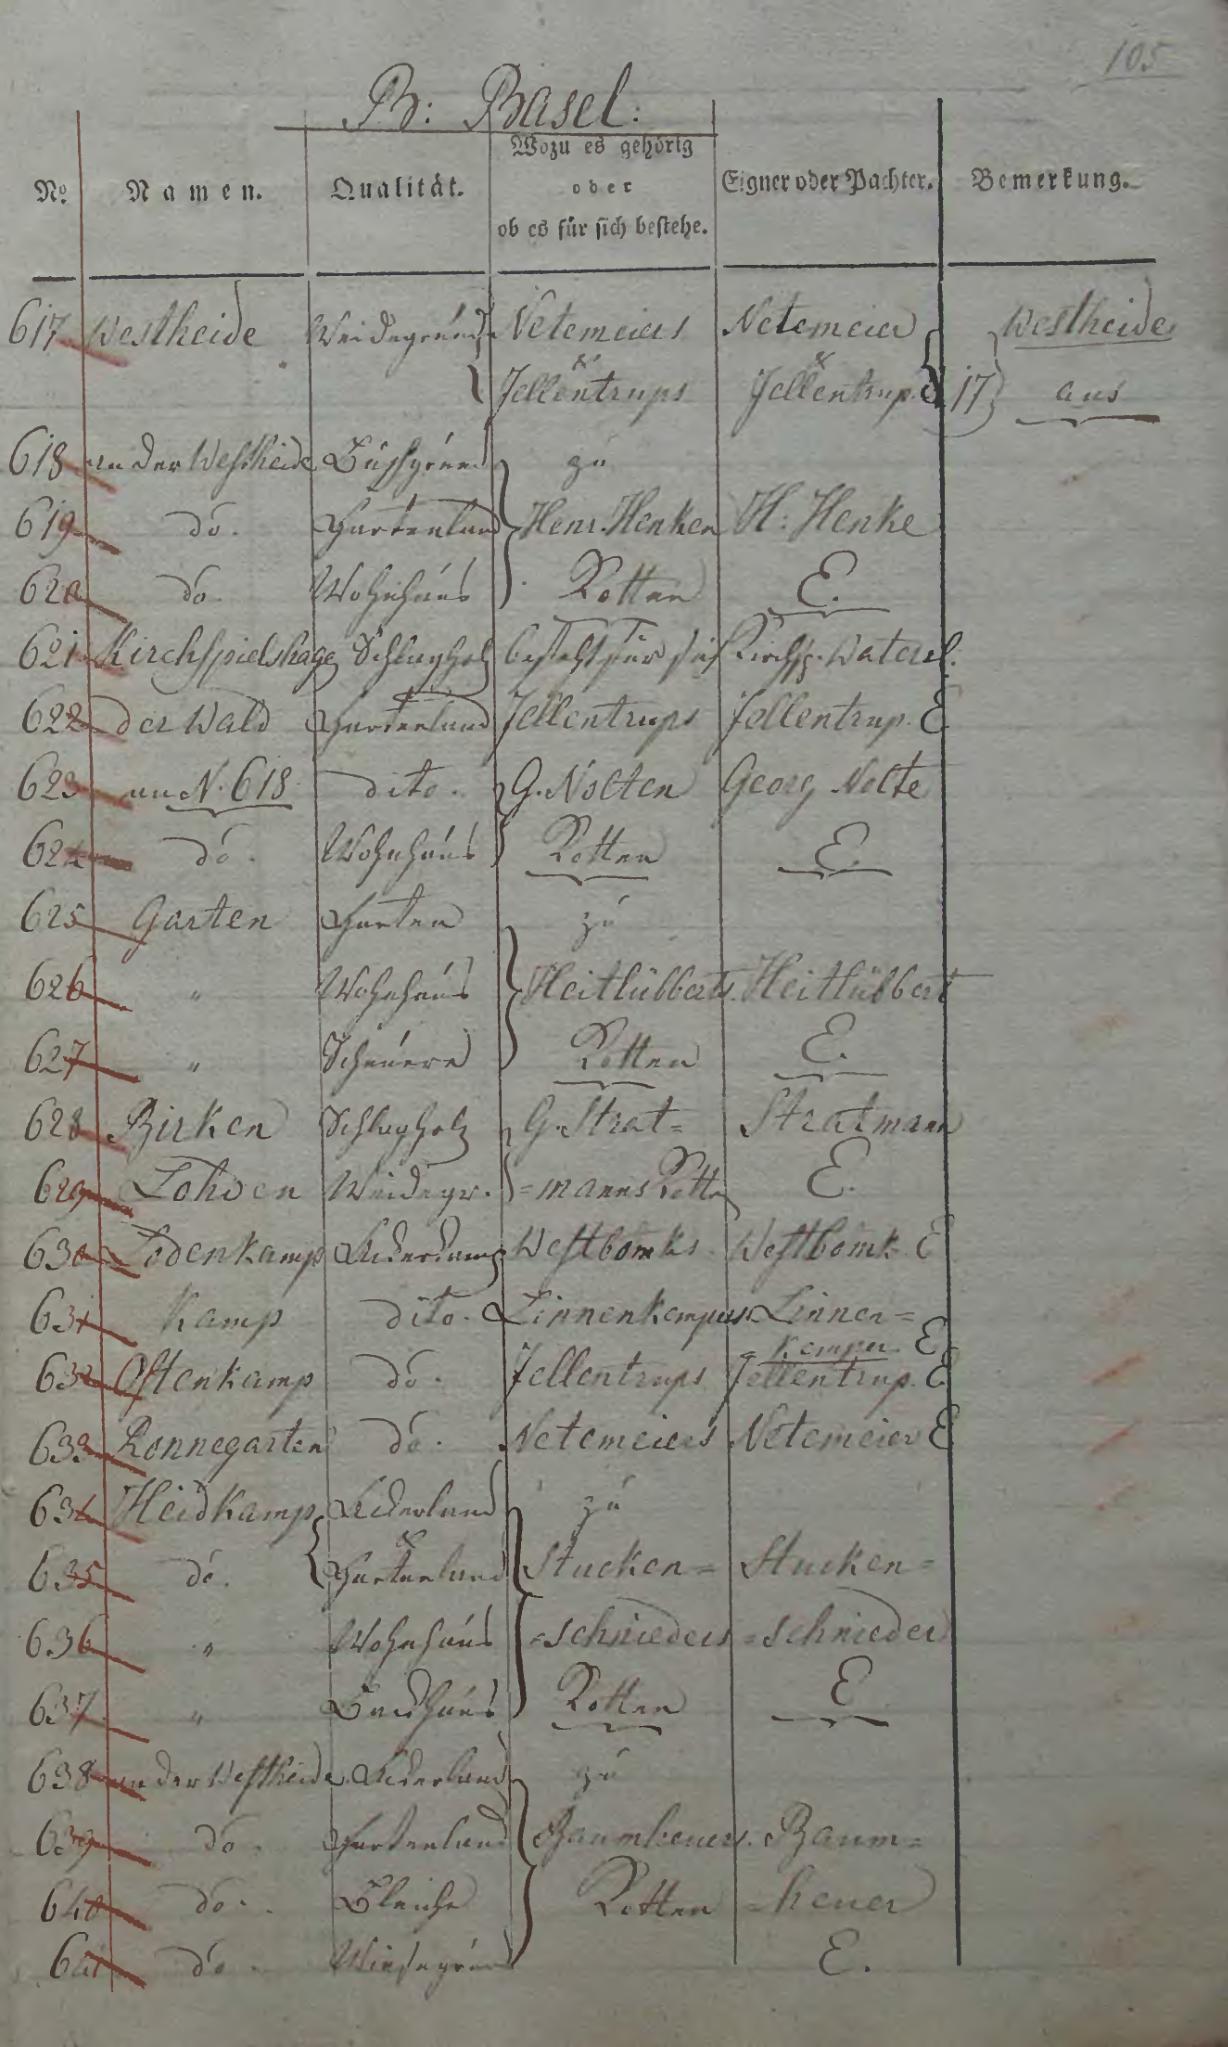 105
B: Basel:
No. Namen. Qualität. Wozu es gehörig oder ob es für sich bestehe. Eigner oder Pachter. Bemerkung.
617 Westheide Weidegrund Netemeiers Netemeier Westheide
& Jellentrups & Jellentrup. E 17 aus
618 an der Westheide Buschgrund zu
619 do. Gartenland Henr. Henken H: Henke
620 do. Wohnhaus Kotten E.
621 Kirchspielshage Schlagholz besteht für sich Kirchsp. Watersl.
622 der Wald Gartenland Jellentrups Jellentrup. E
623 an N. 618 dito. G. Nolten Georg Nolte
624 do. Wohnhaus Kotten E.
625 Garten Garten zu
626 " Wohnhaus Heitlübberts Heitlübbert
627 " Scheuere Kotten E.
628 Birken Schlagholz G. Strat= Stratmann
629 Lohden Weidegr. =manns Kotten E.
630 Lodenkamp Ackerkamp Westbomks Westbomk E
631 Kamp dito. Linnenkempers Linnen=
kemper E
632 Ostenkamp do. Jellentrups Jellentrup. E
633 Ronnegarten do. Netemeiers Netemeier E
634 Heidkamp Ackerland zu
635 do. & Gartenland Stucken= Stucken=
636 " Wohnhaus =schnieders =schnieder
637 " Backhaus Kotten E
638 an der Westheide Ackerland zu
639 do. Gartenland Baumheuers Baum=
640 do. Bleiche Kotten =heuer
641 do. Wiesegrund E.